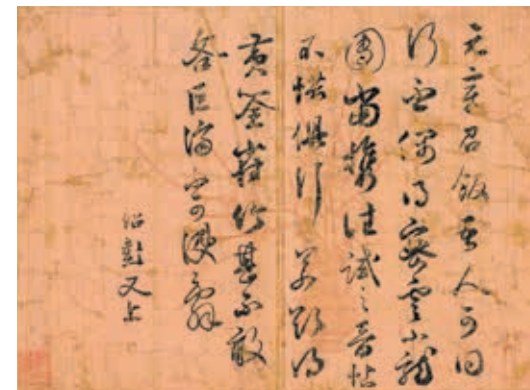 元章召飯吾人可同
行否偶得密雲小龍
團當攜往試之晉帖
不惜俱行得
黃筌雀竹甚不敢
吝巨濟定可
紹彭又上